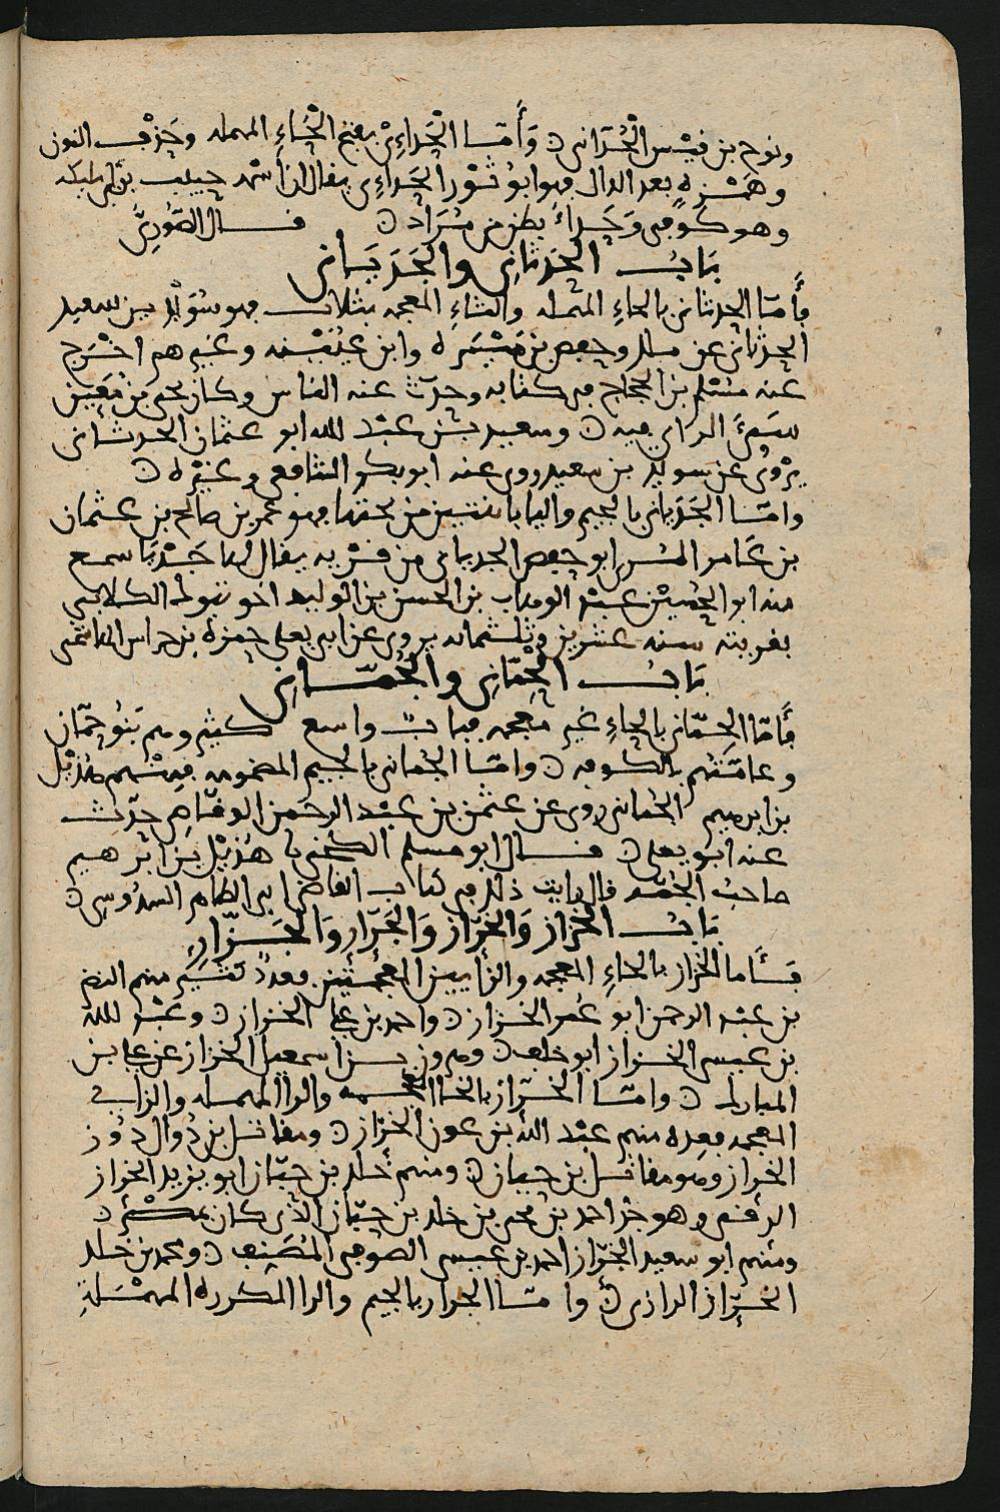 ونوح بن قيس الحُدّاني وَأَمّا الْحَدَاءِيّ بفتح الْحَاءِ المهملة وحَذْف النون
وهَمْزة بعد الدال فهو ابو ثَوْر الحَداءِي يقال ان اسمه حبيب بن ابي مليكة
وهو كوفي وَحَداءُ بطن من مُرَاد قال الصُّورِيّ
بَابُ الحَدَثاني والجَدَيَاني
فَأَمّا الحدثاني بالحاءِ المهملة والثاءِ المعجمة بثلاث فهو سُوَيْد بن سعيد
الحدثاني عن مالك وحفص بن مَيْسَرة وابن عُيَيْنة وغيرهم اخْرج
عنه مُسْلم بن الحجاج في كتابه وحدّث عنه الناس وكان يحيى بن مَعين
سَيّئَ الراي فيه وسعيد بن عبْد الله ابو عثمان الحدثاني
يرْوِي عن سويد بن سعيد روى عنه ابو بكر الشافعي وغيْره
وامّا الجَدَياني بالجيم والياء باثنتين من تحتها فهو عُمر بن صالح بن عثمان
بن عَامر المُرّي ابو حفص الجدياني من قرْية يقال لها جَدْيَا سمع
منه ابو الحُسيْن عبد الوهاب بن الحسن بن الوليد اخو تبوك الكلابي
بقريته سنة عشرين وثلثمائة يروي عن ابي يعلى حمزة بن خراش الهاشمي
بَابُ الحِمّاني والجُمّاني
فَأَمّا الحِمّاني بالحاءِ غير معجمة فبابٌ واسع كثير وهم بَنُو حِمّان
وعامّتهم بالكوفة وامّا الجُماني بالجيم المضمومة فمنْهم هُذَيْل
بن ابرهيم الجُماني روى عن عثمن بن عبد الرحمن الوقّاصي حدّث
عنه ابو يعلى قال ابو مسلم الكجّي نا هُذَيْل بن ابْرهيم
صاحبُ الجُمّة قال رايت ذلك في كتاب القاضي ابي الطاهر السدُوسي
بَابُ الخَزّاز وَالخَرّاز وَالجَرّار وَالجَزّار
فَأَما الخَزاز بالخاءِ المعجمة والزّايين المعجمتين فعددٌ كثير منهم النضر
بن عبْد الرحمن ابو عُمر الخزاز واحمد بن علي الخزاز وعبْد الله
بن عيسى الخزاز ابو خلف وهرون بن اسمعيل الخزاز عن علي بن
المبارك وامّا الخرّاز بالخاء المعجمة والراء المهملة والزاي
المعجمة فعدة منهم عبْد الله بن عون الخرّاز ومقاتل بن دُوال دُوز
الخراز وهو مقاتل بن حيان ومنهم خَلد بن حيّان ابو يزيد الخراز
الرقي وهو جدُّ احمد بن يحيى بن خلد بن حيّان الذي كان بمصْر
ومنهم ابو سعيد الخرّاز احمد بن عيسى الصوفي المُصَنِّف ومحمد بن خلد
الخرّاز الرازي وامّا الجرار بالجيم والراء المكررة المهمَلةِ